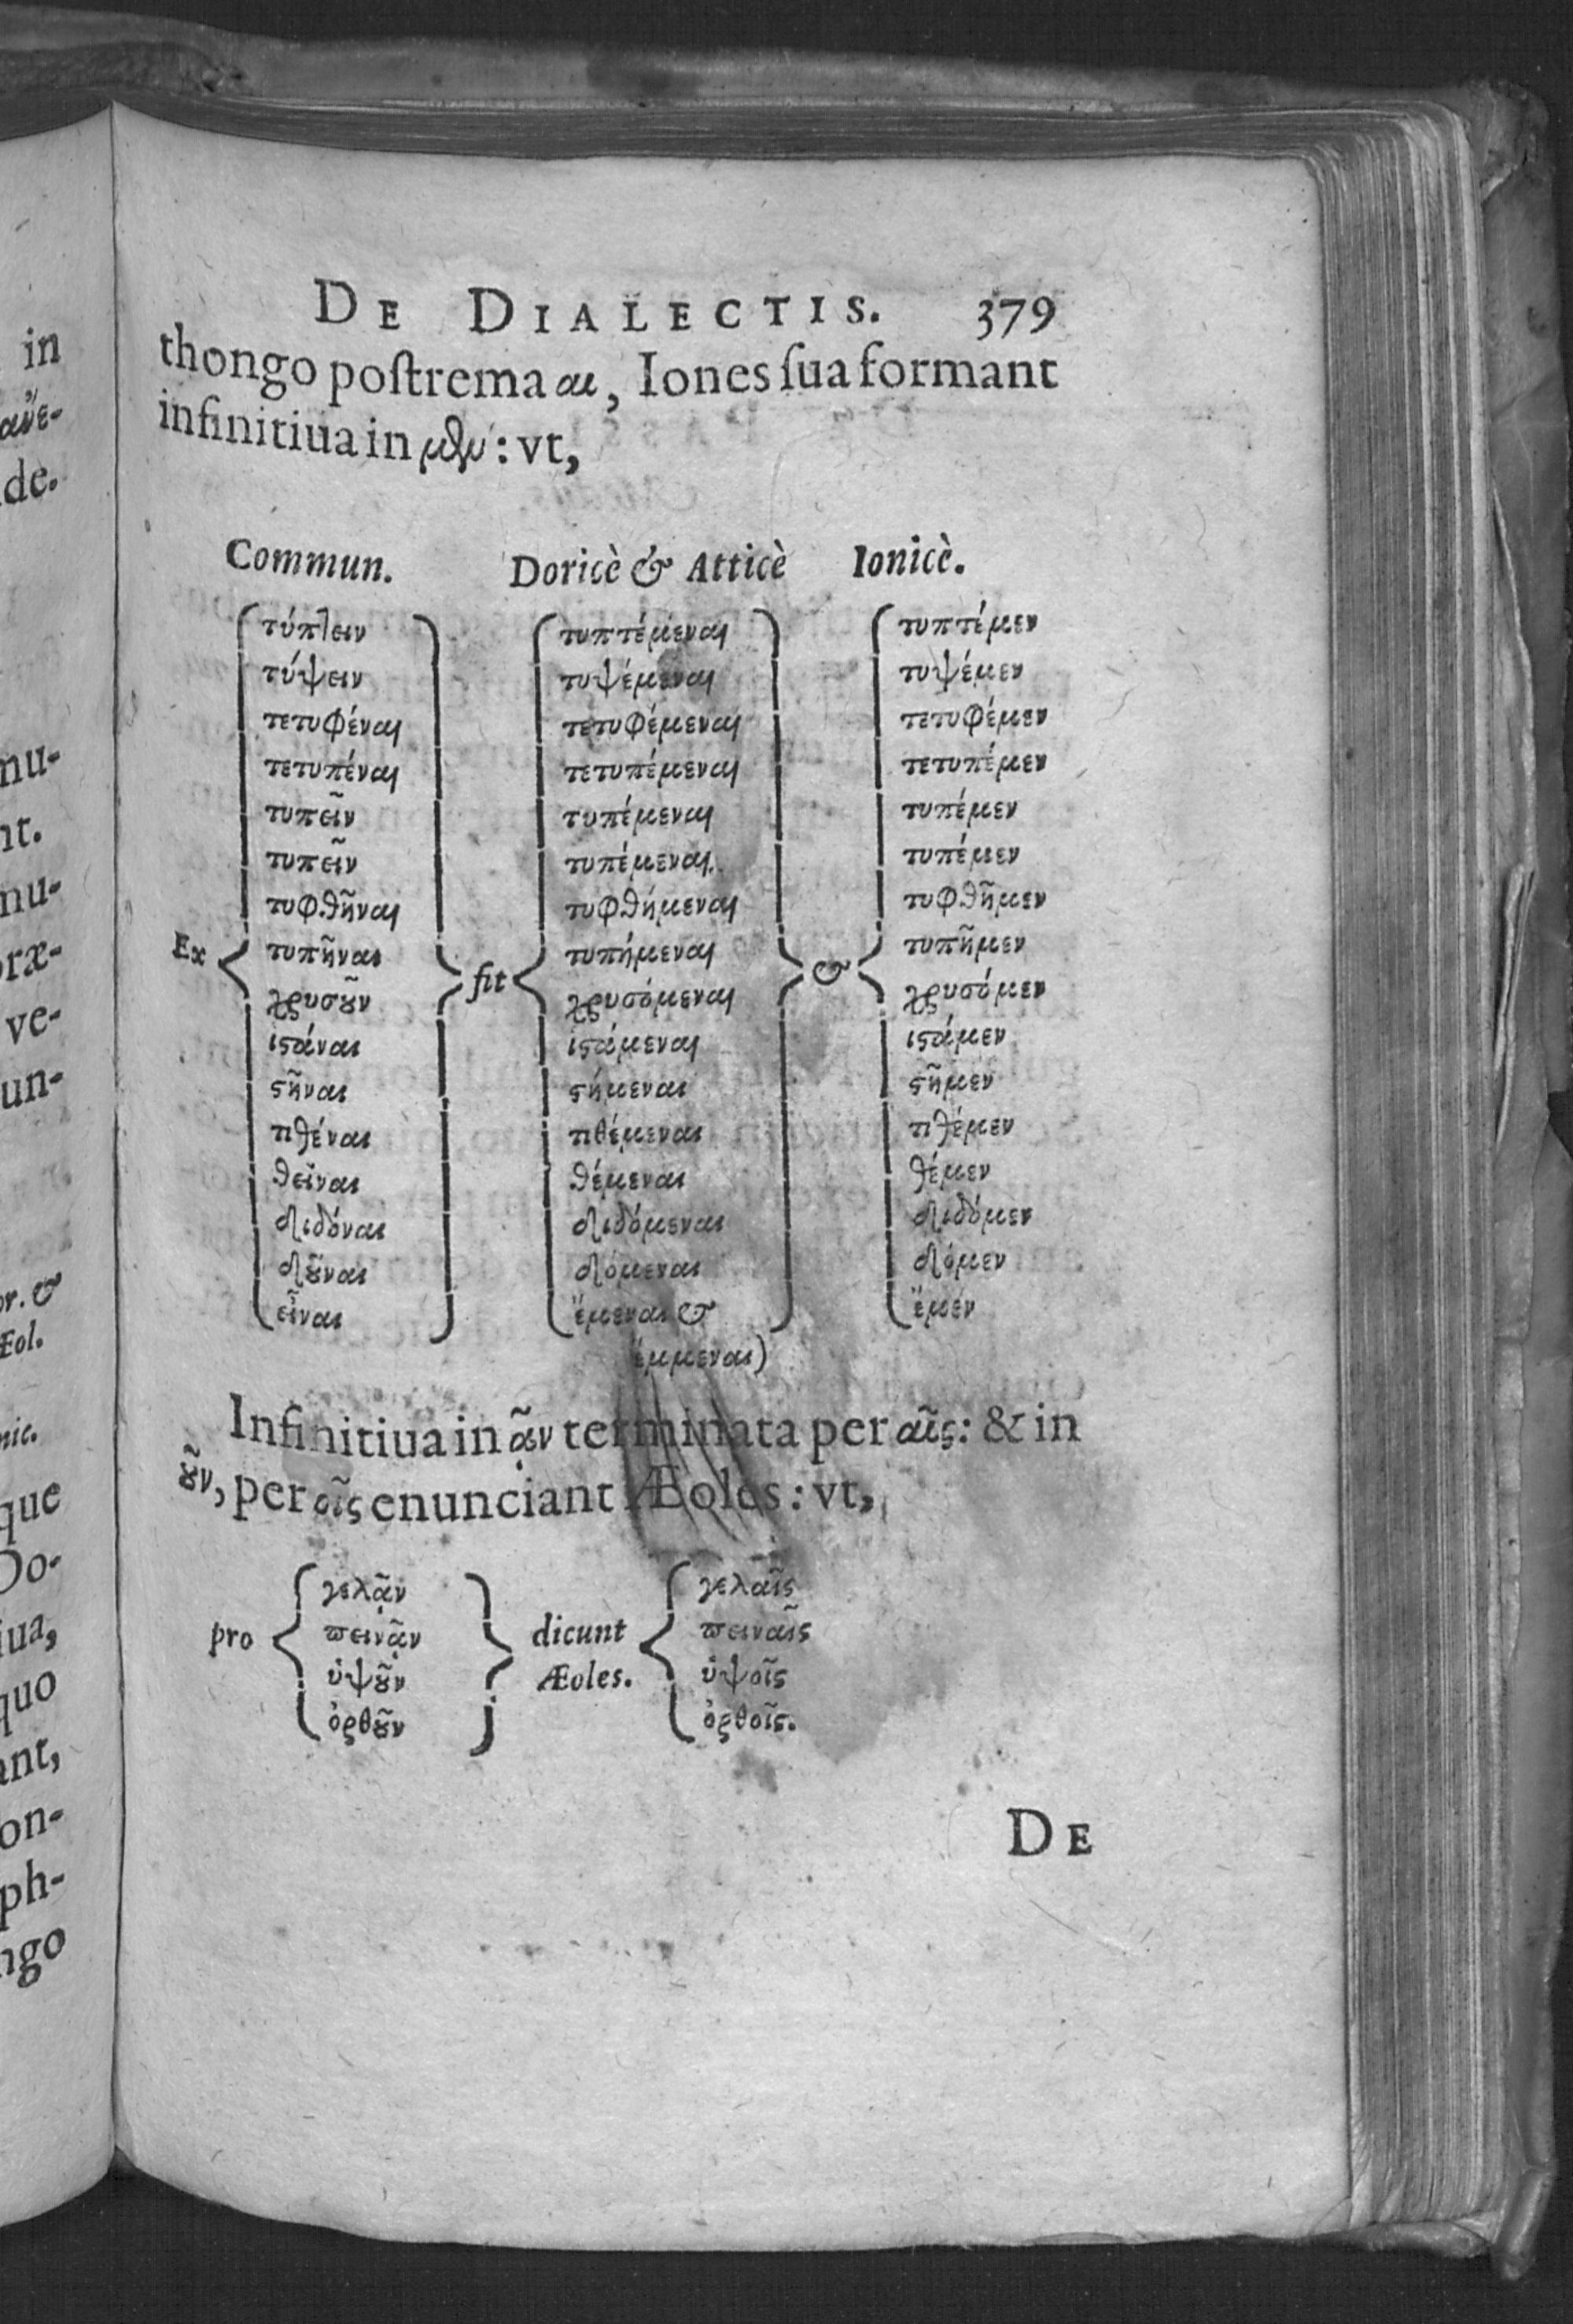 DE DIALECTIS. 379
thongo poſtrema αι, Iones ſua formant
infinitiua in μεν: vt,
Commun. Doricè & Atticè Ionicè.
τύπτειν τυπτέμεναι τυπτέμεν
τύψειν τυψέμεναι τυψέμεν
τετυφέναι τετυφέμεναι τετυφέμεν
τετυπέναι τετυπέμεναι τετυπέμεν
τυπεῖν τυπέμεναι τυπέμεν
τυπεῖν τυπέμεναι. τυπέμεν
τυφθῆναι τυφθήμεναι τυφθῆμεν
Ex τυπῆναι fit τυπήμεναι & τυπῆμεν
χρυσοῦν χρυσόμεναι χρυσόμεν
ιϛάναι ιϛάμεναι ιϛάμεν
ϛῆναι ϛήμεναι ϛῆμεν
τιθέναι τιθέμεναι τιθέμεν
θεῖναι θέμεναι θέμεν
διδόναι διδόμεναι διδόμεν
δοῦναι δόμεναι δόμεν
εἶναι ἔμεναι & ἔμεν
ἔμμεναι)
Infinitiua in ᾷν terminata per αῖς: & in
οῦν, per οῖς enunciant Æoles: vt,
γελᾷν γελαῖς
pro πεινᾷν dicunt πειναῖς
ὑψοῦν Æoles. ὑψοῖς
ὀρθοῦν ὀρθοῖς.
DE
in
de.
mu-
nt.
mu-
præ-
ve-
un-
or. &
Æol.
nic.
que
Do-
iua,
quo
ant,
on-
ph-
ngo